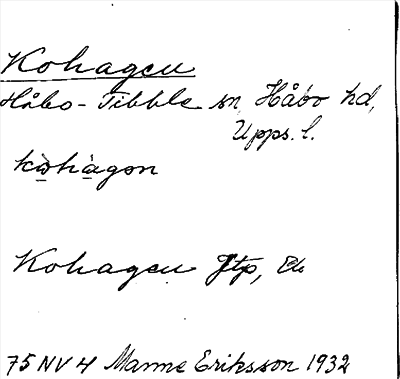 Kohagen
Håbo-Tibble sn, Håbo hd,
Upps. l.
kωhàgon
Kohagen Jtp, Ek
75 NV 4 Manne Eriksson 1932